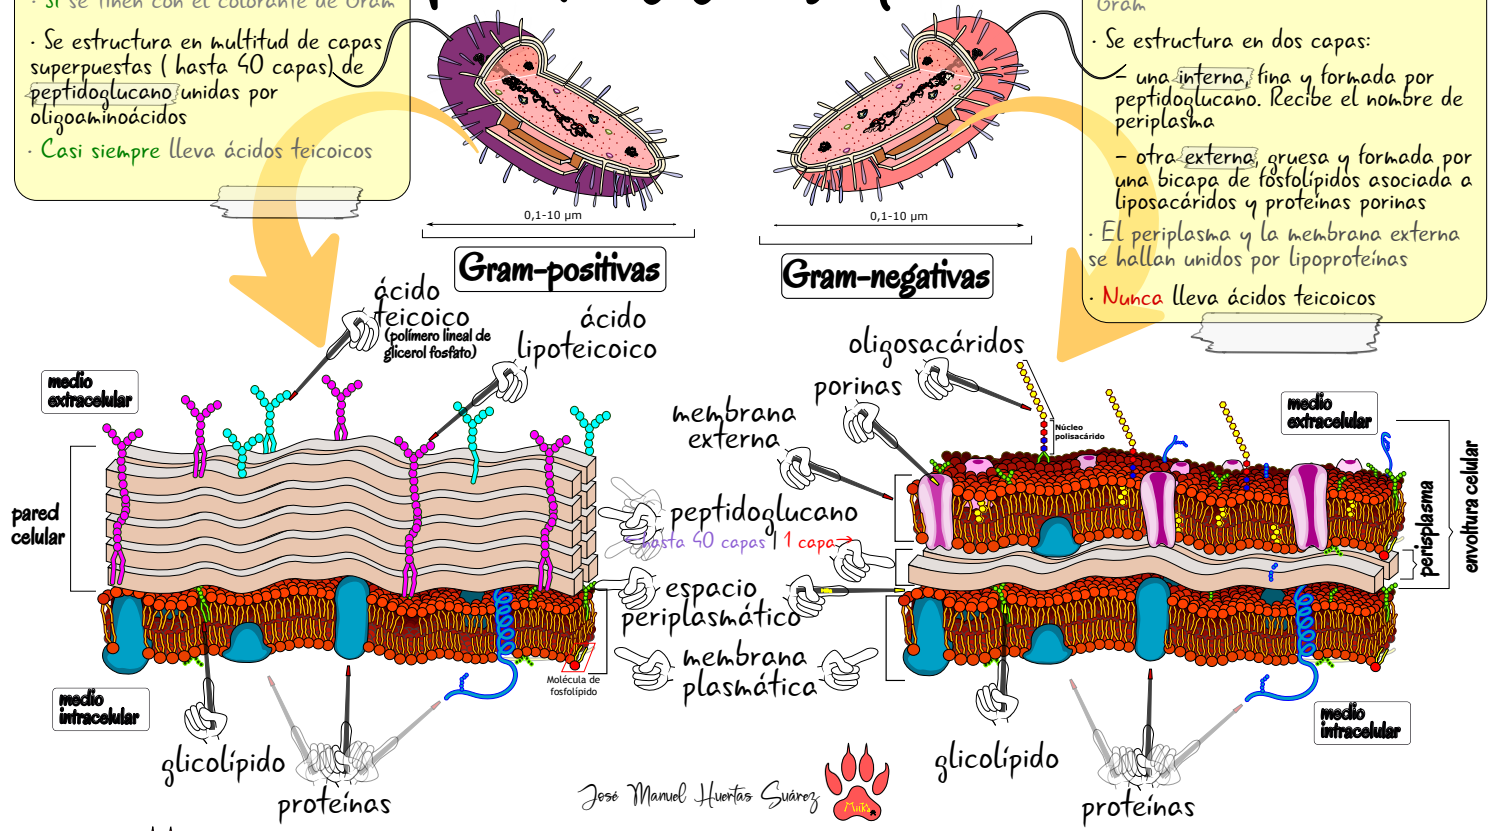 · Sí se tiñen con el colorante de Gram
· Se estructura en multitud de capas
superpuestas ( hasta 40 capas) de
peptidoglucano unidas por
oligoaminoácidos
· Casi siempre lleva ácidos teicoicos
Gram
· Se estructura en dos capas:
– una interna, fina y formada por
peptidoglucano. Recibe el nombre de
periplasma
– otra externa, gruesa y formada por
una bicapa de fosfolípidos asociada a
liposacáridos y proteínas porinas
· El periplasma y la membrana externa
se hallan unidos por lipoproteínas
· Nunca lleva ácidos teicoicos
0,1-10 µm
0,1-10 µm
Gram-positivas
Gram-negativas
ácido
teicoico
(polímero lineal de
glicerol fosfato)
ácido
lipoteicoico
medio
extracelular
pared
celular
oligosacáridos
porinas
membrana
externa
Núcleo
polisacárido
medio
extracelular
perisplasma
envoltura celular
peptidoglucano
hasta 40 capas | 1 capa
espacio
periplasmático
membrana
plasmática
Molécula de
fosfolípido
medio
intracelular
medio
intracelular
glicolípido
proteínas
glicolípido
proteínas
José Manuel Huertas Suárez